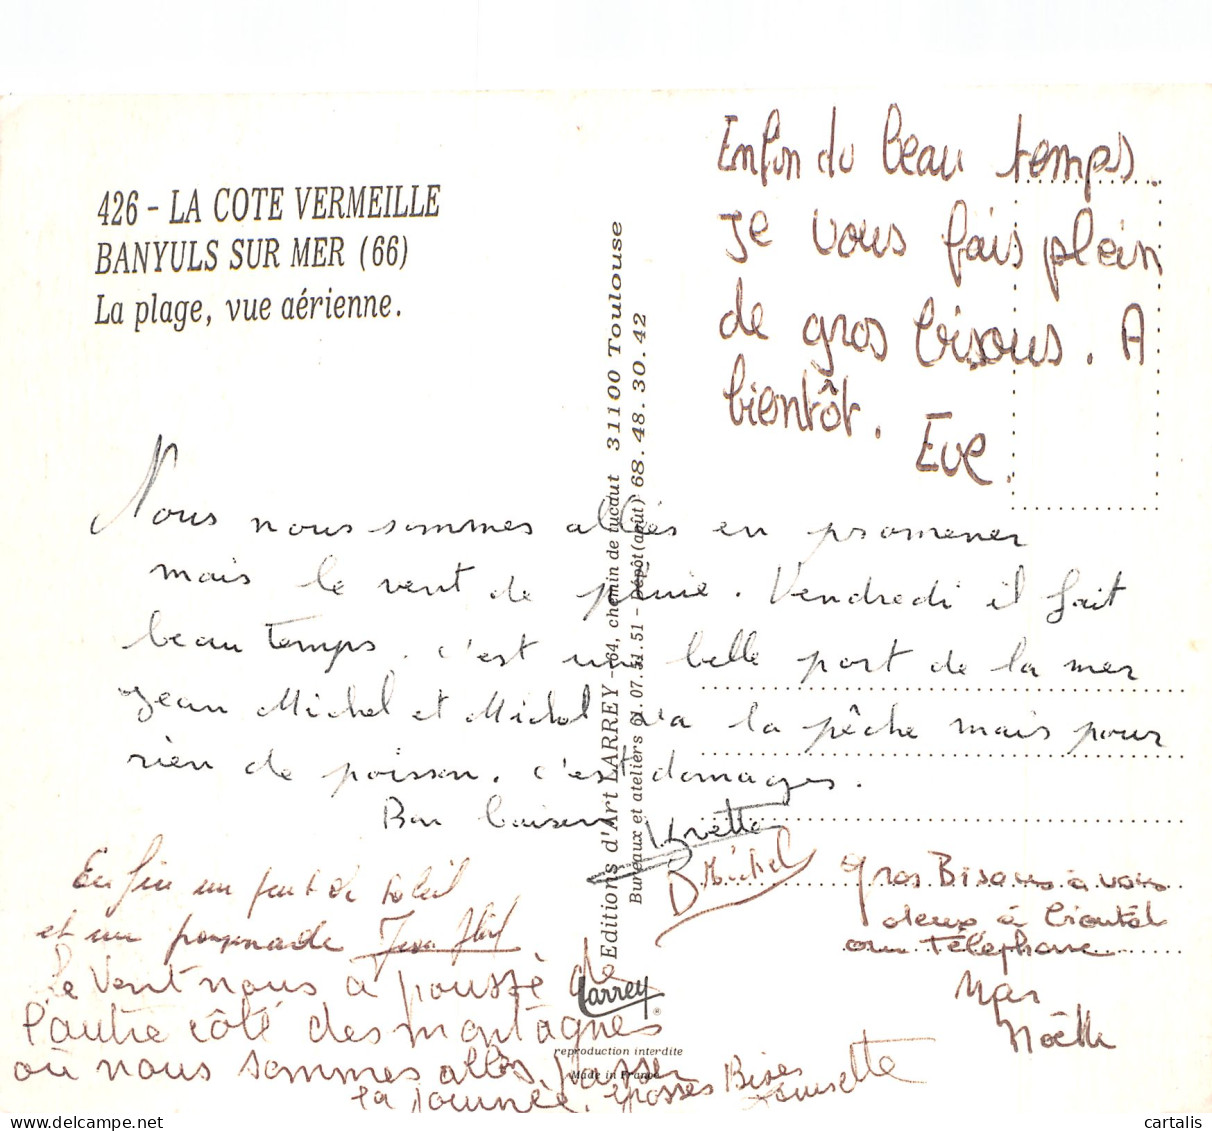 426 - LA COTE VERMEILLE
BANYULS SUR MER (66)
La plage, vue aérienne.
Enfin du beau temps.
Je vous fais plein
de gros bisous. A
bientôt. Eve.
Editions d'Art LARREY - 64, chemin de tucdut 31100 Toulouse
Bureaux et ateliers 61.07.51.51 - Dépôt (août) 68.48.30.42
Nous nous sommes allés en promener
mais le vent de pluie. Vendredi il fait
beau temps. c'est une belle port de la mer
Jean Michel et Michel va a la pêche mais pour
rien de poisson. c'est domages.
Bon baisers Yvette
Michel
Enfin un peut de soleil
et un promenade Jean
Le vent nous à poussé de
l'autre côté des montagnes
où nous sommes allés passer
la journée. grosses Bises
Louisette
Gros Bisous à vous
deux à bientôt
au Téléphone
Noëlle
Larrey
®
reproduction interdite
Made in France
cartalis